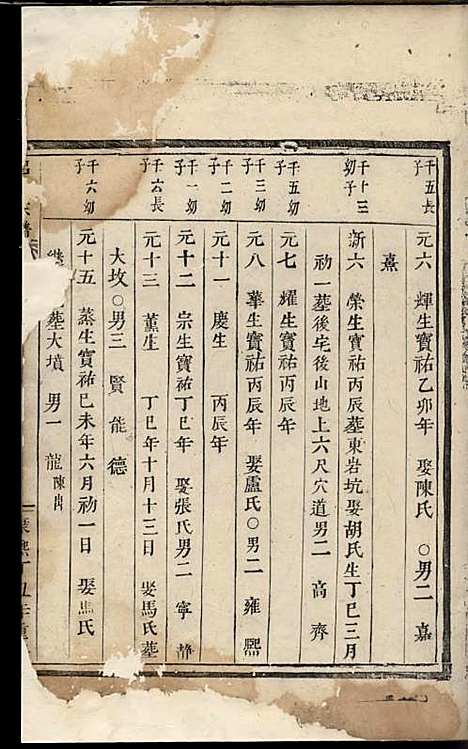 千五長子
元六 輝生寶祐乙卯年 娶陳氏 ○男二 嘉
熹
千十三幼子
新六 榮生寶祐丙辰墓東岩坑娶胡氏生丁巳三月
初一墓後宅後山地上六尺穴道男二 高 齊
千五幼子
元七 耀生寶祐丙辰年
千三幼子
元八 華生寶祐丙辰年 娶盧氏○男二 雍 熙
千二幼子
元十一 慶生 丙辰年
千一幼子
元十二 宗生寶祐丁巳年 娶張氏男二 寧 靜
千六長子
元十三 薰生 丁巳年十月十三日 娶馬氏墓
大坟○男三 賢 能 德
千六幼子
元十五 蒸生寶祐己未年六月初一日 娶馬氏
墓大墳 男一 龍